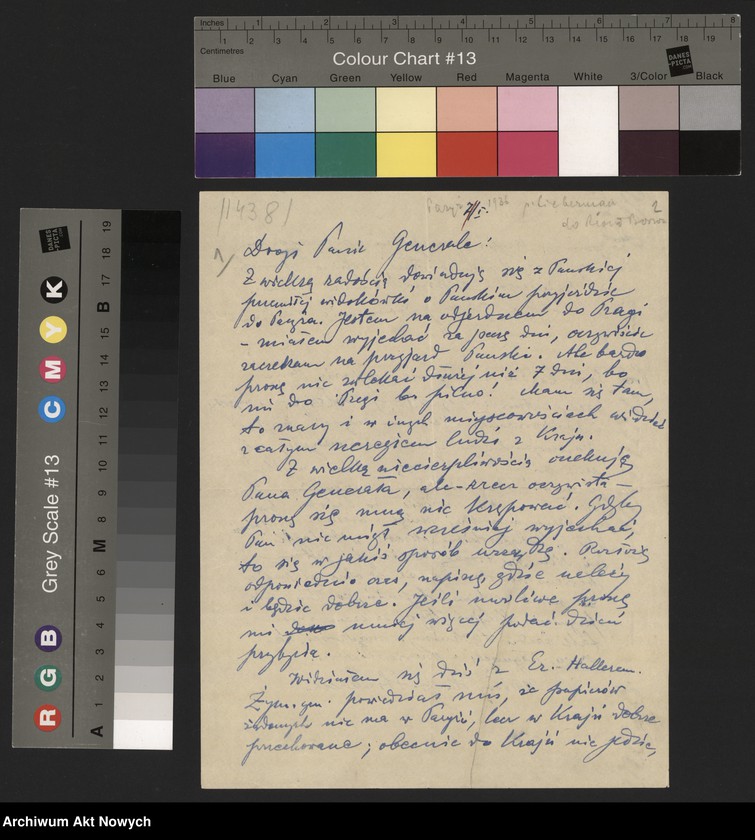 Inches 1 2 3 4 5 6 7 8
Centimetres 1 2 3 4 5 6 7 8 9 10 11 12 13 14 15 16 17 18 19
Colour Chart #13
DANES PICTA
Blue Cyan Green Yellow Red Magenta White 3/Color Black
Grey Scale #13
R G B C M Y K
A 1 2 3 4 5 6 M 8 9 10 11 12 13 14 15 B 17 18 19
1438
Paryż 1936
Drogi Panie Generale!
Z wielką radością dowiaduję się z Pańskiej
przemiłej widokówki o Pańskim przyjeździe
do Paryża. Jestem na odjezdnem do Pragi
– miałem wyjechać za parę dni, oczywiście
zaczekam na przyjazd Pański. Ale bardzo
proszę nie zwlekać dłużej niż 7 dni, bo
mi do Pragi bo pilno! Mam się tam,
to znaczy i w innych miejscowościach widzieć
z całym szeregiem ludzi z Kraju.
Z wielką niecierpliwością oczekuję
Pana Generała, ale – rzecz oczywista –
proszę się mną nie krępować. Gdyby
Pan nie mógł wcześniej wyjechać,
to się w jakiś sposób urządzę. Ruszę
odpowiednio oczy, napiszę gdzie należy
i będzie dobrze. Jeśli możliwe proszę
mi mniej więcej podać dzień
przybycia.
Widziałem się dziś z Hallerem.
powiedział mi, że papierów
żadnych nie ma w Paryżu, lecz w Kraju dobrze
przechowane; obecnie do Kraju nie jedzie,
Archiwum Akt Nowych